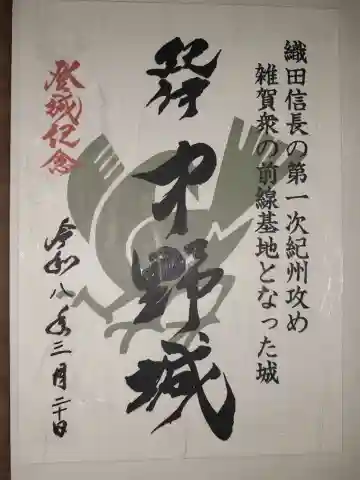 織田信長の第一次紀州攻め
雑賀衆の前線基地となった城
紀伊
中野城
登城紀念
令和八年三月二十日